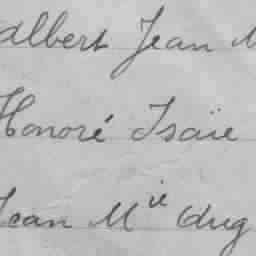 Albert Jean M
Honoré Isaïe
Jean Mie Aug